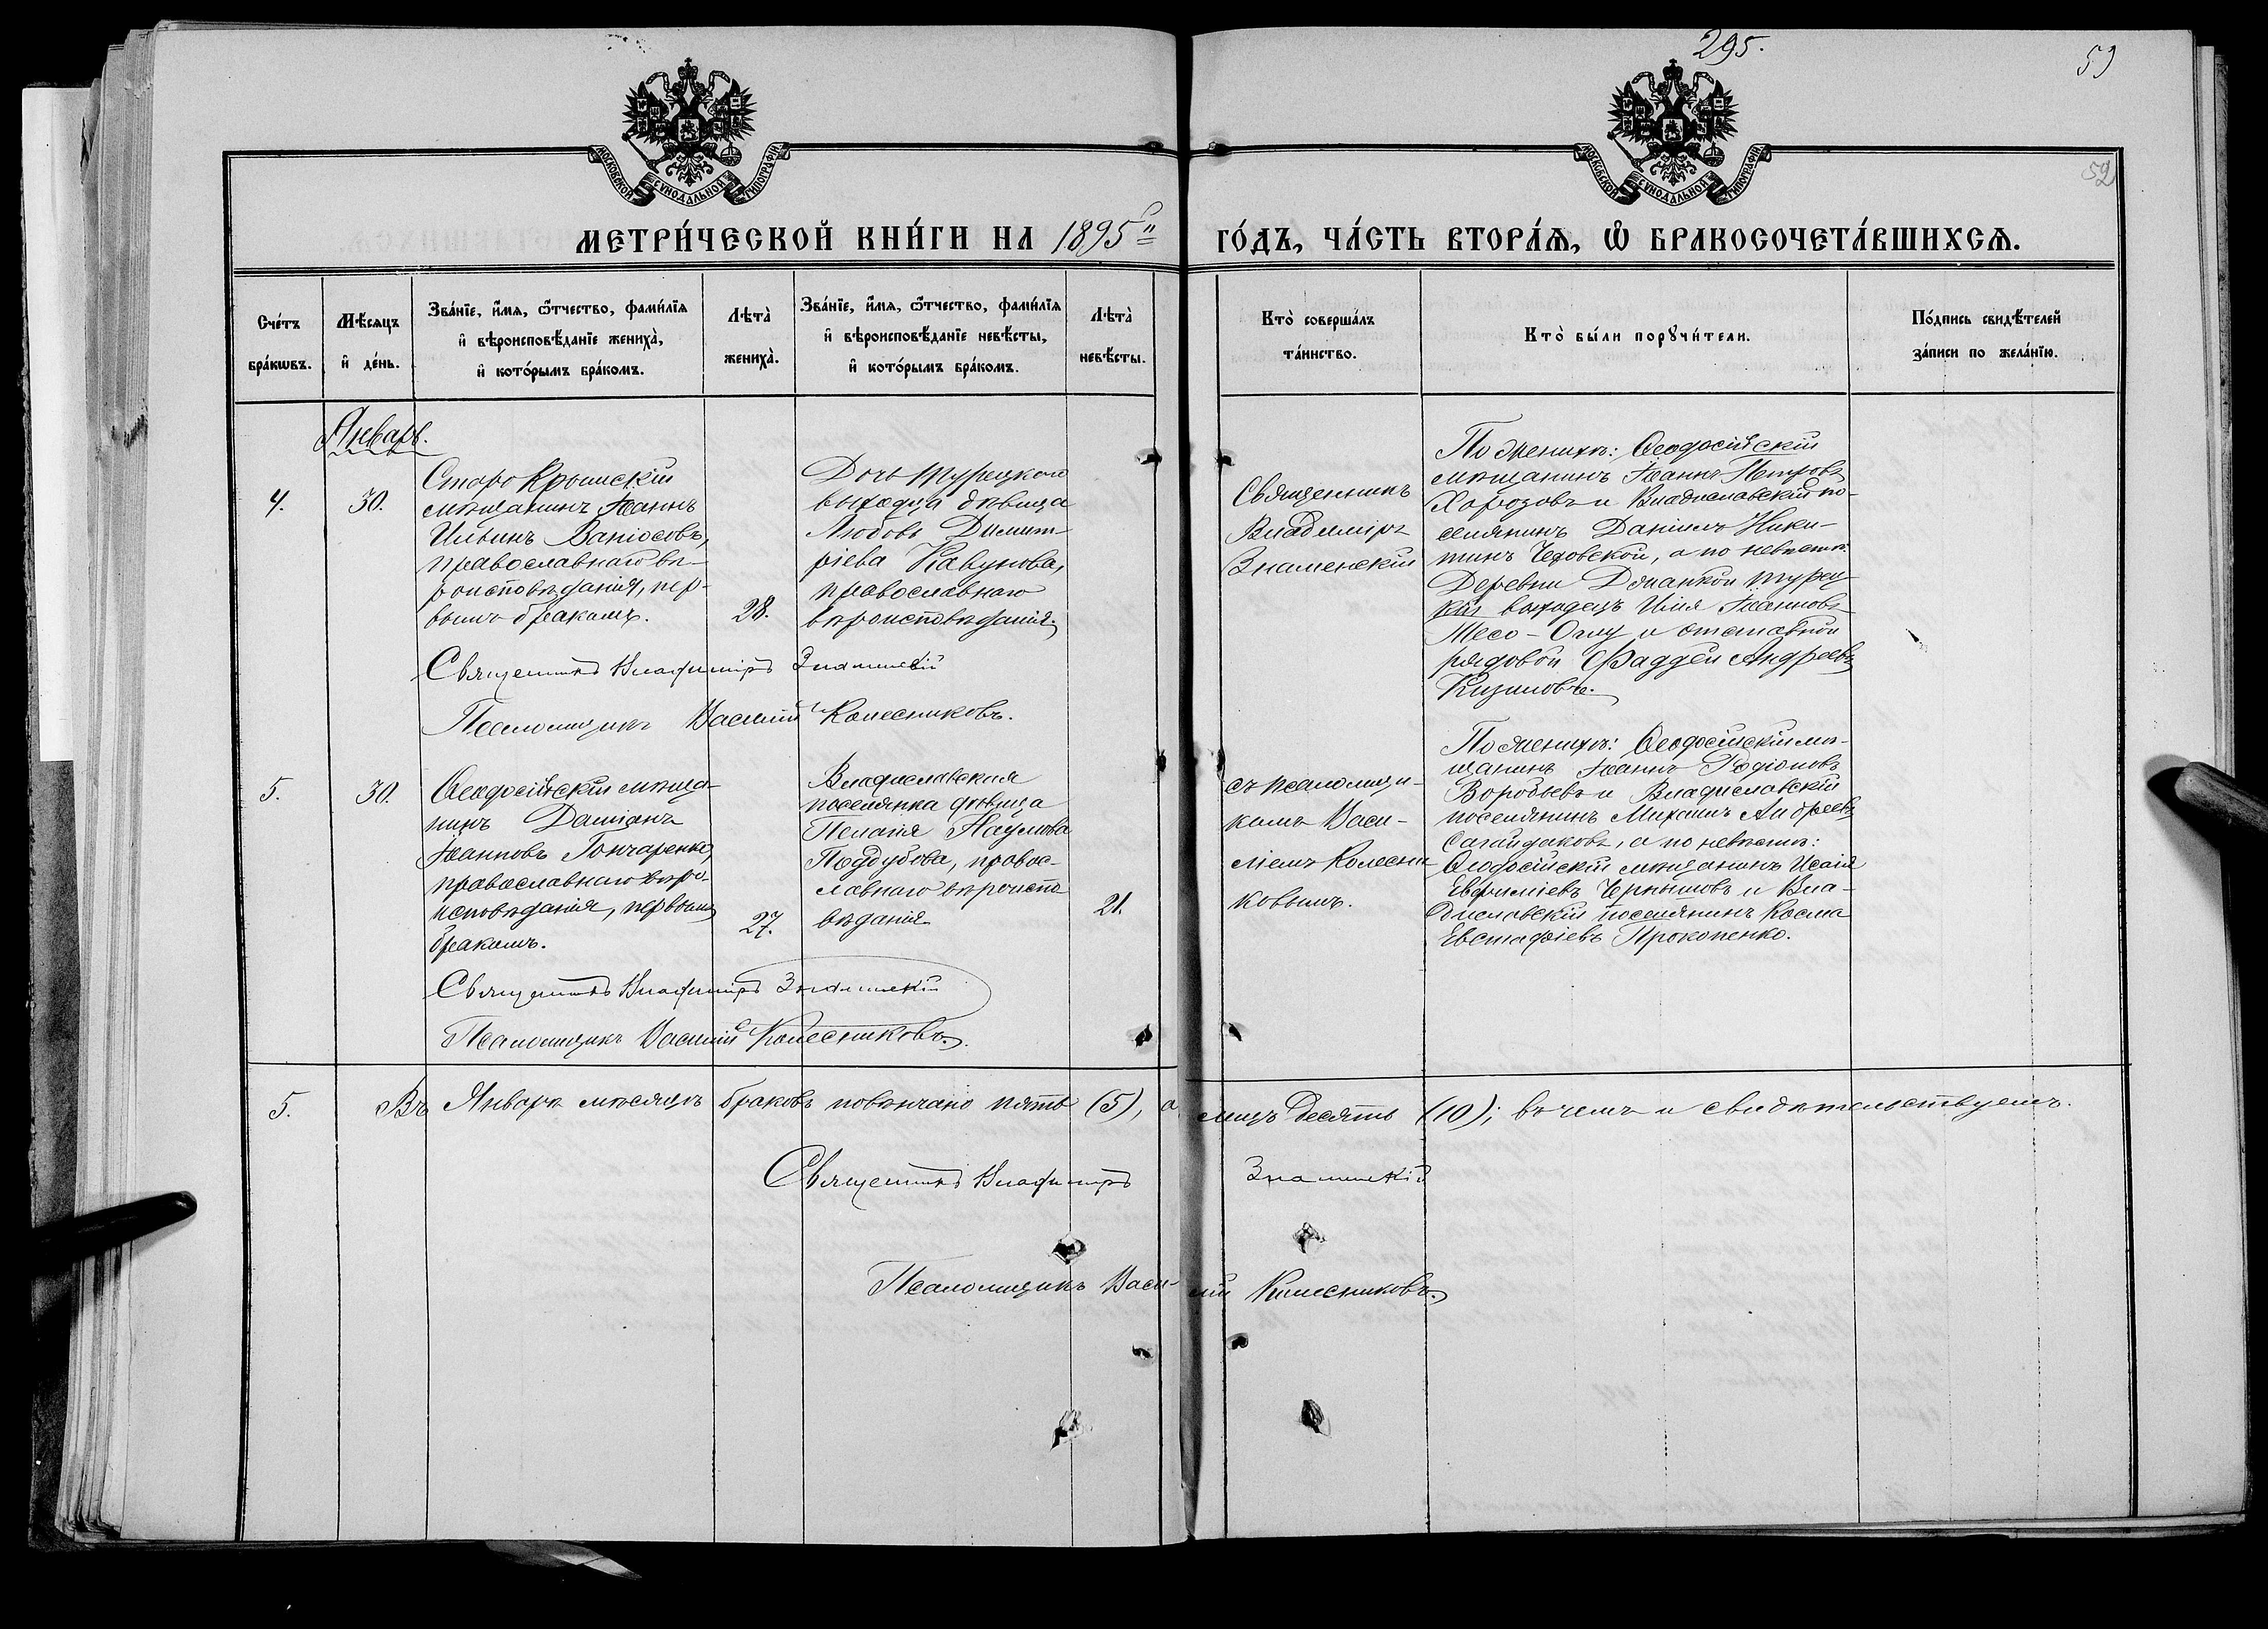 295.
59
52
МОСКОВСКОЙ СѴНОДАЛЬНОЙ ТИПОГРАФІИ
МОСКОВСКОЙ СѴНОДАЛЬНОЙ ТИПОГРАФІИ
МЕТРИ́ЧЕСКОЙ КНИ́ГИ НА 1895й ГО́ДЪ, ЧА́СТЬ ВТОРА́Ѧ, Ѽ БРАКОСОЧЕТА́ВШИХСѦ.
Сче́тъ
бра́кѡвъ.
Мѣ́сяцъ
и҆ де́нь.
Зва́нїе, и҆́мя, ѻ҆́тчество, фами́лїя
и҆ вѣроисповѣ́данїе жениха̀,
и҆ кото́рымъ бра́комъ.
Лѣта̀
жениха̀.
Зва́нїе, и҆́мя, ѻ҆́тчество, фами́лїя
и҆ вѣроисповѣ́данїе невѣ́сты,
и҆ кото́рымъ бра́комъ.
Лѣта̀
невѣ́сты.
Кто̀ соверша́лъ
та́инство.
Кто̀ бы́ли порꙋчи́тели.
По́дпись свидѣ́телей
за́писи по жела́нїю.
Январь.
4.
30.
Старо Крымскій
мѣщанинъ Іоаннъ
Ильинъ Ваніосовъ,
православнаго вѣ-
роисповѣданія, пер-
вымъ бракомъ.
28.
Дочь турецкаго
выходца дѣвица
Любовь Димит-
ріева Кавунова,
православнаго
вѣроисповѣданія.
Священникъ
Владиміръ
Знаменскій
По женихѣ: Ѳеодосійскій
мѣщанинъ Іоаннъ Петровъ
Хорозовъ и Владиславскій по-
селянинъ Даніилъ Ники-
тинъ Чедовской, а по невѣстѣ:
Деревни Джанкой турец-
кій выходецъ Илія Іоанновъ
Тесо-Оглу и отставной
рядовой Фаддей Андреевъ
Кизиловъ.
Священникъ Владиміръ Знаменскій
Псаломщикъ Василій Колесниковъ.
5.
30.
Ѳеодосійскій мѣща-
нинъ Даміанъ
Іоанновъ Гончаренко,
православнаго вѣро-
исповѣданія, первымъ
бракомъ.
27.
Владиславская
поселянка дѣвица
Пелагія Наумова
Поддубова, правос-
лавнаго вѣроиспо
вѣданія
21.
съ псаломщи-
комъ Васи-
ліемъ Колесни
ковымъ.
По женихѣ: Ѳеодосійскій мѣ-
щанинъ Іоаннъ Родіоновъ
Воробьевъ и Владиславскій
поселянинъ Михаилъ Андреевъ
Сагайдаковъ, а по невѣстѣ:
Ѳеодосійскій мѣщанинъ Исаія
Евфиміевъ Чернышовъ и Вла-
диславскій поселянинъ Косма
Евстафіевъ Прокопенко.
Священникъ Владиміръ Знаменскій
Псаломщикъ Василій Колесниковъ.
5. Въ Январѣ мѣсяцѣ браковъ повѣнчано пять (5), а лицъ десять (10); въ чемъ и свидѣтельствуемъ.
Священникъ Владиміръ Знаменскій
Псаломщикъ Василій Колесниковъ.